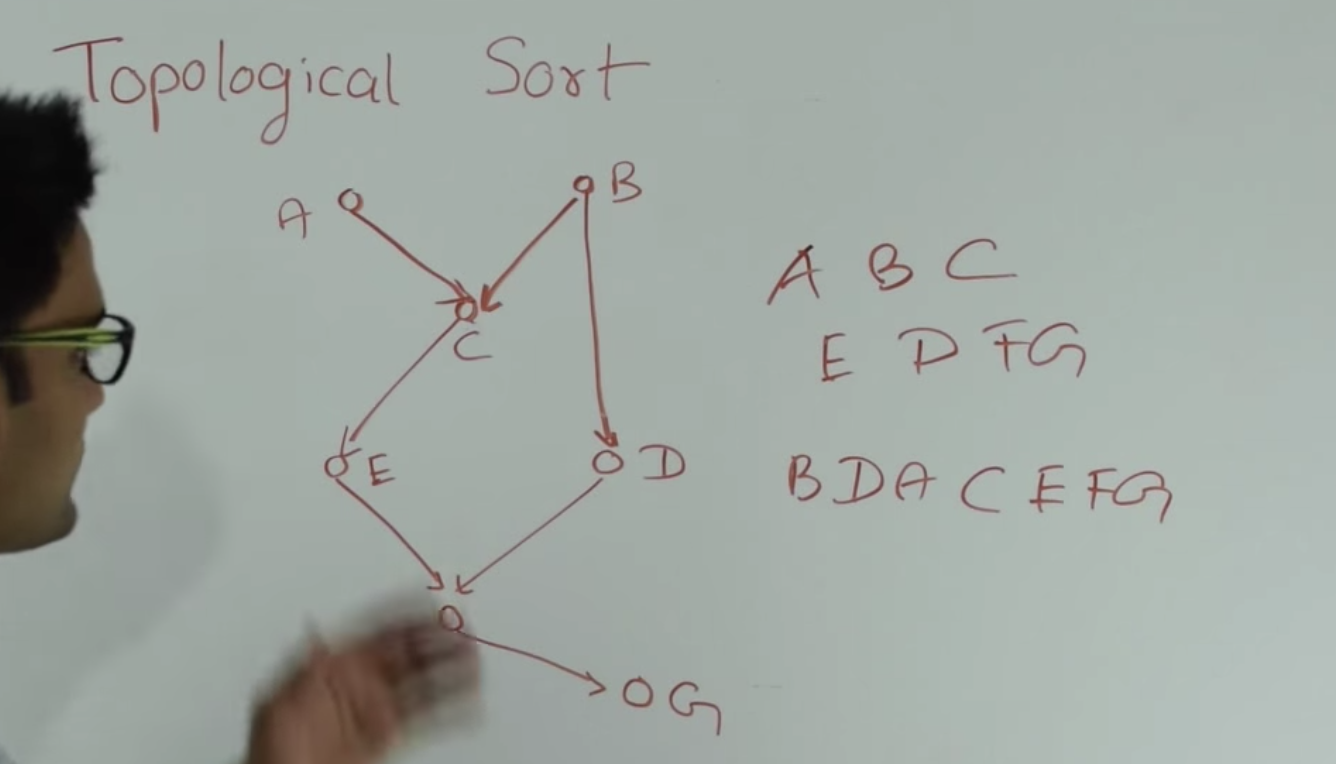 Topological Sort
A
B
C
E
D
G
A B C
E D F G
B D A C E F G